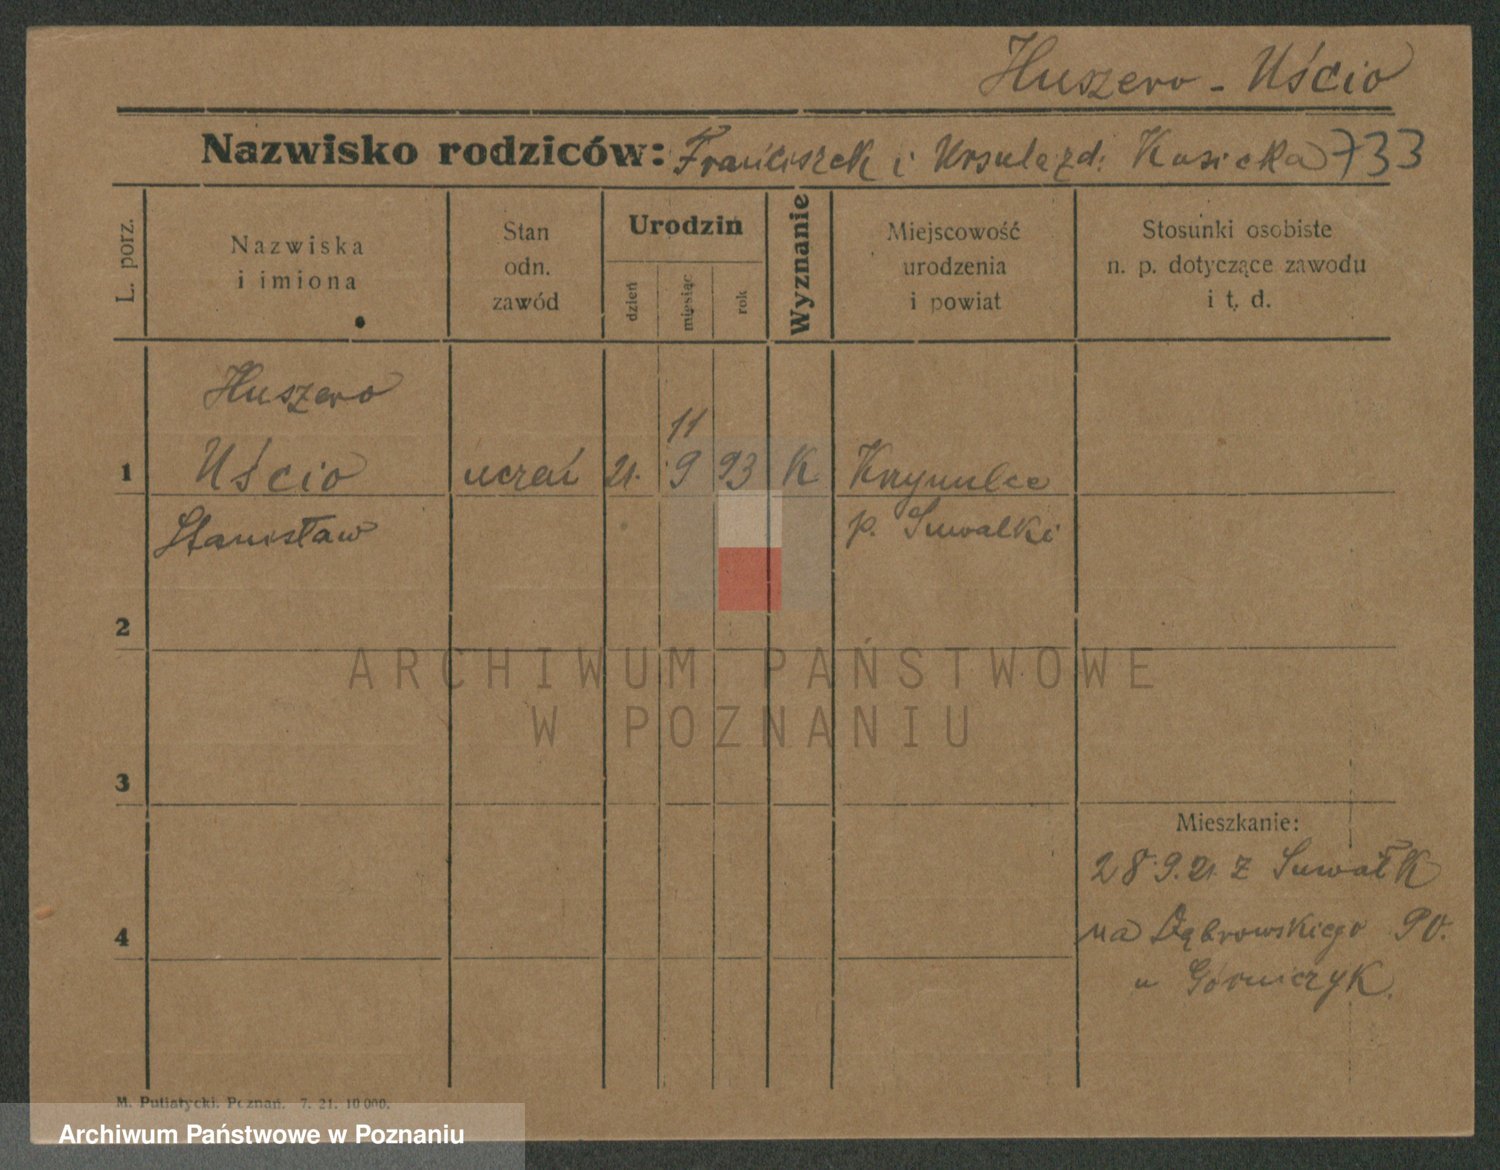 Huszero - Uścio
Nazwisko rodziców: Franciszek i Ursula zd. Kasicka 733
L. porz.
Nazwiska
i imiona
Stan
odn.
zawód
Urodzin
dzień
miesiąc
rok
Wyznanie
Miejscowość
urodzenia
i powiat
Stosunki osobiste
n. p. dotyczące zawodu
i t. d.
Huszero
11
1 Uścio uczeń 21. 9 93 K
Stanisław p. Suwalki
2
3
4
Mieszkanie:
28.9.21. z Suwałk
na Dąbrowskiego 90.
u Górniczyk.
M. Putiatycki. Poznań. 7. 21. 10 000.
ARCHIWUM PAŃSTWOWE
W POZNANIU
Archiwum Państwowe w Poznaniu